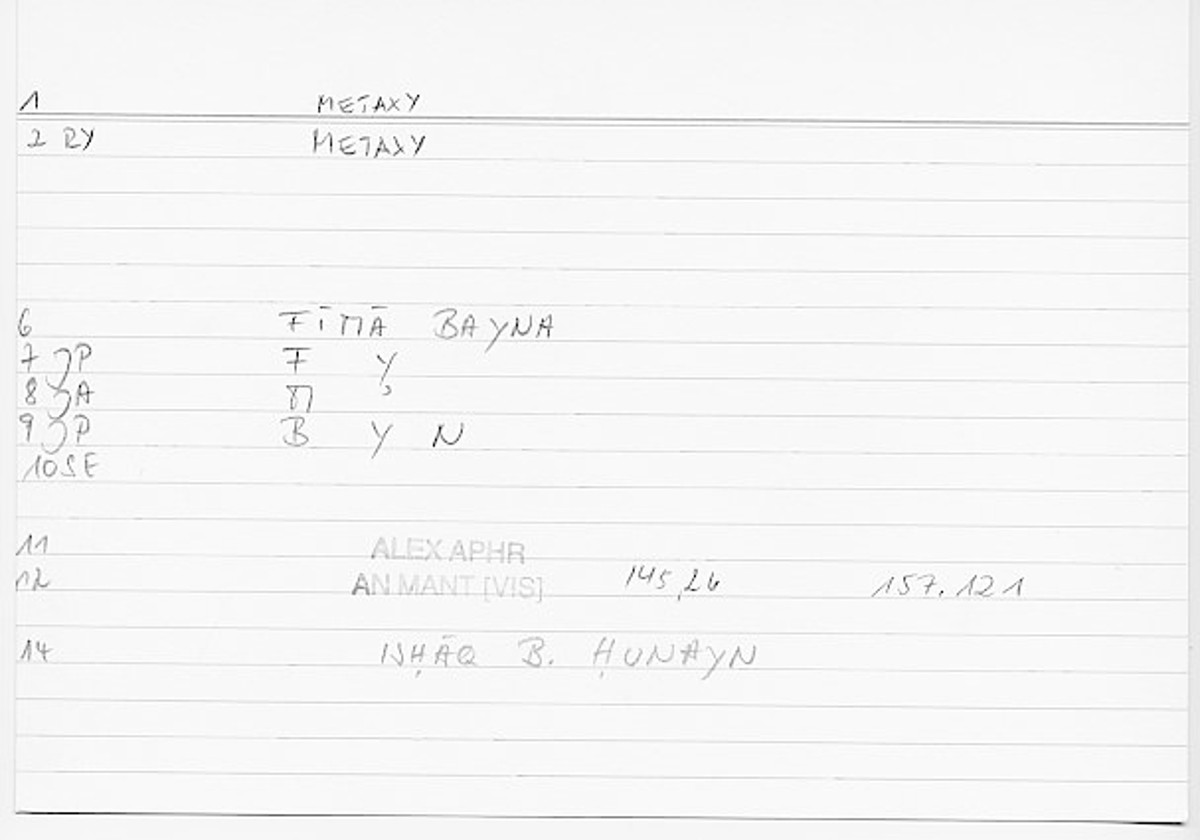 1 METAXY
2 RY METAXY
6 FĪMĀ BAYNA
7 JP F Y
8 JA M ʾ
9 JP B Y N
10 SE
11 ALEX APHR
12 AN MANT [VIS] 145,26 157.121
14 ISḤĀQ B. ḤUNAYN